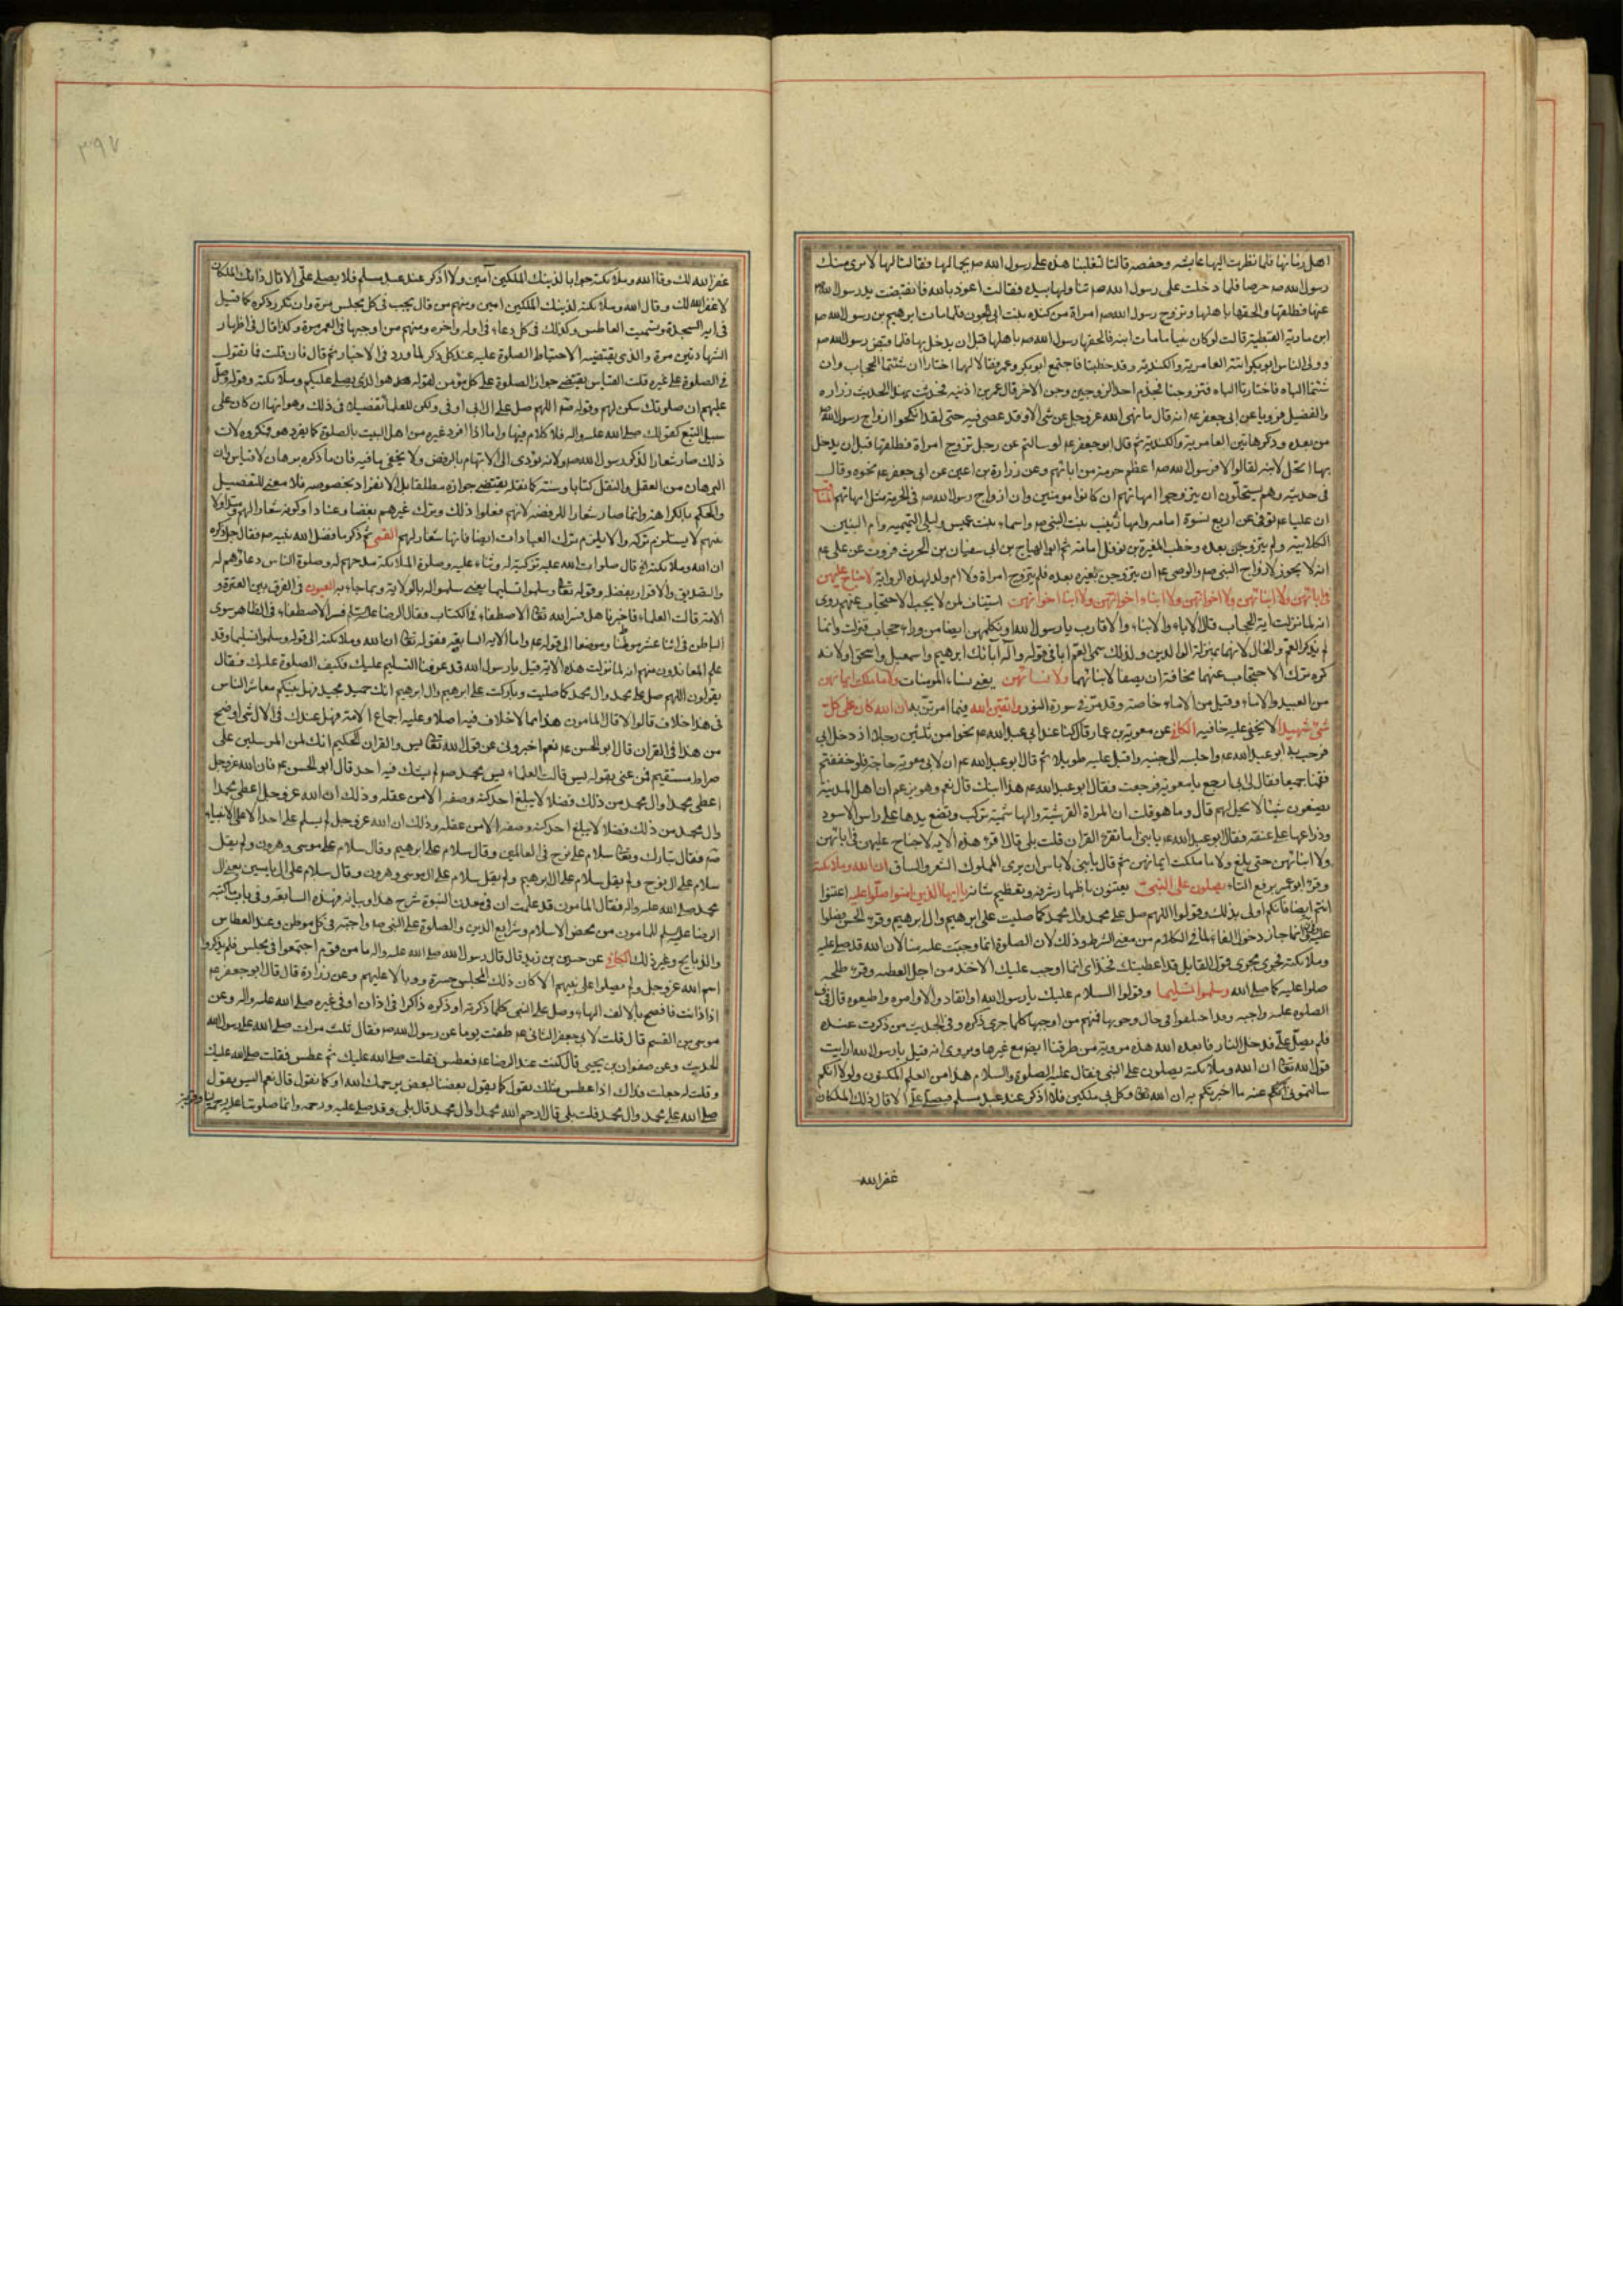 اهل زمانها فلما نظرت اليها عايشه وحفصه قالتا لتغلبنا هذه على رسول الله صم بجمالها فقالتا لها لا يرى منك
رسول الله صم حرصا فلما دخلت على رسول الله صم تناولها بيده فقالت اعوذ بالله فانقبضت يد رسول الله صم
عنها فطلقها والحقها باهلها وتزوج رسول الله صم امراة من كنده بنت ابى الجون فلما مات ابرهيم بن رسول الله صم
ابن مارية القبطية قالت لو كان نبيا ما مات ابنه فالحقها رسول الله صم باهلها قبل ان يدخل بها فلما قبض رسول الله صم
وولى الناس ابو بكر اتته العامرية والكندية وقد خطبتا فاجتمع ابو بكر وعمر فقالا لهما اختارا ان شئتما الحجاب وان
شئتما الباه فاختارتا الباه فتزوجتا فجذم احد الزوجين وجن الاخر قال عمر بن اذينه فحدثت بهذا الحديث زراره
والفضيل فرويا عن ابى جعفر عم انه قال ما نهى الله عز وجل عن شئ الا وقد عصى فيه حتى لقد انكحوا ازواج رسول الله صم
من بعده وذكر هاتين العامرية والكندية ثم قال ابو جعفر عم لو سالتم عن رجل تزوج امراة فطلقها قبل ان يدخل
بها اتحل لابنه لقالوا لا فرسول الله صم اعظم حرمة من ابائهم وعن زرارة بن اعين عن ابى جعفر عم نحوه وقال
فى حديثه وهم يستحلون ان يتزوجوا امهاتهم ان كانوا مومنين وان ازواج رسول الله صم فى الحرمة مثل امهاتهم
ان عليا عم توفى عن اربع نسوة امامه وامها زينب بنت النبى صم واسماء بنت عميس وليلى التميميه وام البنين
الكلابية ولم يتزوجن بعده وخطب المغيرة بن نوفل امامة ثم ابو الهياج بن ابى سفيان بن الحرث فروت عن على عم
انه لا يجوز لازواج النبى صم والوصى عم ان يتزوجن بغيره بعده فلم يتزوج امراة ولا ام ولد لهذه الرواية لا جناح عليهن
فى ابائهن ولا ابنائهن ولا اخوانهن ولا ابناء اخوانهن ولا ابناء اخواتهن استيناف لمن لا يجب الاحتجاب عنهم روى
انه لما نزلت اية الحجاب قال الاباء والابناء والاقارب يا رسول الله او نكلمهن ايضا من وراء حجاب فنزلت وانما
لم يذكر العم والخال لانهما بمنزلة الوالدين ولذلك سمى العم ابا فى قوله واله ابائك ابرهيم واسمعيل واسحق او لانه
كره ترك الاحتجاب عنهما مخافة ان يصفا لابنائهما ولا نسائهن يعنى نساء المومنات ولا ما ملكت ايمانهن
من العبيد والاماء وقيل من الاماء خاصة وقد مر فى سورة النور واتقين الله فيما امرتن به ان الله كان على كل
شئ شهيدا لا يخفى عليه خافيه الكافى عن معوية بن عمار قال كنا عند ابى عبد الله عم نحوا من ثلثين رجلا اذ دخل ابى
فرحب به ابو عبد الله عم واجلسه الى جنبه واقبل عليه طويلا ثم قال ابو عبد الله عم ان لابى معوية حاجة فلو خففتم
فقمنا جميعا فقال لى ابى ارجع يا معوية فرجعت فقال ابو عبد الله عم هذا ابنك قال نعم وهو يزعم ان اهل المدينة
يصنعون شيئا لا يحل لهم قال وما هو قلت ان المراة القرشية والهاشمية تركب وتضع يدها على راس الاسود
وذراعها على عنقه فقال ابو عبد الله عم يا بنى اما تقرء القران قلت بلى قال اقرء هذه الايه لا جناح عليهن فى ابائهن
ولا ابنائهن حتى بلغ ولا ما ملكت ايمانهن ثم قال يا بنى لا باس ان يرى المملوك الشعر والساق ان الله وملائكته
وقرء ابو عمر برفع التاء يصلون على النبى يعتنون باظهار شرفه وتعظيم شانه يا ايها الذين امنوا صلوا عليه اعتنوا
انتم ايضا فانكم اولى بذلك وقولوا اللهم صل على محمد وال محمد كما صليت على ابرهيم وال ابرهيم وقرء الحسن فصلوا
عليه انما جاز دخول الفاء لما فى الكلام من معنى الشرط وذلك لان الصلوة انما وجبت عليه منا لان الله قد صلى عليه
وملائكته فجرى مجرى قول القايل قد اعطيتك فخذ اى انما اوجب عليك الاخذ من اجل العطيه وقرء طلحه
صلوا عليه كما صلى الله وسلموا تسليما وقولوا السلام عليك يا رسول الله او انقادوا لاوامره واطيعوه قال فى
الصلوه عليه واجبه وقد اختلفوا فى حال وجوبها فمنهم من اوجبها كلما جرى ذكره وفى الحديث من ذكرت عنده
فلم يصل على فدخل النار فابعده الله هذه مروية من طرقنا ايضا مع غيرها ويروى انه قيل يا رسول الله ارايت
قول الله تعالى ان الله وملائكته يصلون على النبى فقال عليه الصلوة والسلام هذا من العلم المكنون ولولا انكم
سالتمونى عنه ما اخبرتكم به ان الله تعالى وكل بى ملكين فلا اذكر عند عبد مسلم فيصلى على الا قال ذلك الملكان
غفر الله
٣٩٧
غفر الله لك وقال الله وملائكته جوابا لذينك الملكين آمين ولا اذكر عند عبد مسلم فلا يصلى على الا قال ذانك الملكان
لا غفر الله لك وقال الله وملائكته لذينك الملكين امين ومنهم من قال يجب فى كل مجلس مرة وان تكرر ذكره كما قيل
فى اية السجدة وتشميت العاطس وكذلك فى كل دعاء فى اوله واخره ومنهم من اوجبها فى العمر مرة وكذا قال فى اظهار
الشهادتين مرة والذى يقتضيه الاحتياط الصلوة عليه عند كل ذكر لما ورد فى الاخبار ثم قال فان قلت فما تقول
فى الصلوة على غيره قلت القياس يقتضى جواز الصلوة على كل مؤمن لقوله هو الذى يصلى عليكم وملائكته وقوله وصل
عليهم ان صلوتك سكن لهم وقوله صم اللهم صل على ال ابى اوفى ولكن للعلماء تفصيلا فى ذلك وهو انها ان كان على
سبيل التبع كقولك صلى الله عليه واله فلا كلام فيها واما اذا افرد غيره من اهل البيت بالصلوة كما يفرد هو فمكروه لان
ذلك صار شعارا لذكر رسول الله صم ولانه يؤدى الى الاتهام بالرفض ولا يخفى ما فيه فان ما ذكره برهان لا قياس لان
البرهان من العقل والنقل كتابا وسنة كما نقله يقتضى جوازه مطلقا بل الانفراد بخصوصه فلا معنى للتفصيل
والحكم بالكراهة وانما صار شعارا للرفضه لانهم فعلوا ذلك وترك غيرهم بغضا وعنادا وكونه شعارا لهم
منهم لا يستلزم تركه والا يلزم ترك العبادات ايضا فانها شعار لهم القمى ثم ذكر ما فضل الله نبيه صم فقال جل ذكره
ان الله وملائكته الخ قال صلوات الله عليه تزكية له وثناء عليه وصلوة الملائكة مدحهم له وصلوة الناس دعاؤهم له
والتصديق والاقرار بفضله وقوله تعالى وسلموا تسليما يعنى سلموا له بالولاية وبما جاء به العيون فى الفرق بين العترة و
الامة قالت العلماء فاخبرنا هل فسر الله تعالى الاصطفاء فى الكتاب فقال الرضا عليه السلام فسر الاصطفاء فى الظاهر سوى
الباطن فى اثنا عشر موطنا وموضعا الى قوله عم واما الاية السابعة فقوله تعالى ان الله وملائكته الى قوله وسلموا تسليما وقد
علم المعاندون منهم انه لما نزلت هذه الاية قيل يا رسول الله قد عرفنا التسليم عليك فكيف الصلوة عليك فقال
يقولون اللهم صل على محمد وال محمد كما صليت وباركت على ابرهيم وال ابرهيم انك حميد مجيد فهل بينكم معاشر الناس
فى هذا خلاف قالوا لا قال المامون هذا مما لا خلاف فيه اصلا وعليه اجماع الامة فهل عندك فى الال شئ اوضح
من هذا فى القران قال ابو الحسن عم نعم اخبرونى عن قول الله تعالى يس والقران الحكيم انك لمن المرسلين على
صراط مستقيم فمن عنى بقوله يس قالت العلماء يس محمد صم لم يشك فيه احد قال ابو الحسن عم فان الله عز وجل
اعطى محمدا وال محمد من ذلك فضلا لا يبلغ احد كنه وصفه الا من عقله وذلك ان الله عز وجل اعطى محمدا
وال محمد من ذلك فضلا لا يبلغ احد كنه وصفه الا من عقله وذلك ان الله عز وجل لم يسلم على احد الا على الانبياء
صم فقال تبارك وتعالى سلام على نوح فى العالمين وقال سلام على ابرهيم وقال سلام على موسى وهرون ولم يقل
سلام على ال نوح ولم يقل سلام على ال ابرهيم ولم يقل سلام على ال موسى وهرون وقال سلام على ال ياسين يعنى ال
محمد صلى الله عليه واله فقال المامون قد علمت ان فى معدن النبوة شرح هذا وبيانه فهذه السابعة وفى باب ما كتبه
الرضا عليه السلام للمامون من محض الاسلام وشرايع الدين والصلوة على النبى صلم واجبة فى كل موطن وعند العطاس
والذبايح وغير ذلك الكافى عن حسين بن زيد قال قال رسول الله صلى الله عليه واله ما من قوم اجتمعوا فى مجلس فلم يذكروا
اسم الله عز وجل ولم يصلوا على نبيهم الا كان ذلك المجلس حسرة ووبالا عليهم وعن زرارة قال قال ابو جعفر عم
اذا اذنت فافصح بالالف والهاء وصل على النبى كلما ذكرته او ذكره ذاكر فى اذان او فى غيره صلى الله عليه واله وعن
موسى بن القسم قال قلت لابى جعفر الثانى عم طفت يوما عن رسول الله صم فقال ثلث مرات صلى الله على رسول الله
الحديث وعن صفوان بن يحيى قال كنت عند الرضا عم فعطس فقلت صلى الله عليك ثم عطس فقلت صلى الله عليك
وقلت له جعلت فداك اذا عطس مثلك نقول كما يقول بعضنا لبعض يرحمك الله او كما نقول قال نعم اليس يقول
صلى الله على محمد وال محمد قلت بلى قال ارحم الله محمدا وال محمد قال بلى وقد صلى عليه ورحمه وانما صلوتنا عليه رحمة لنا وقربة